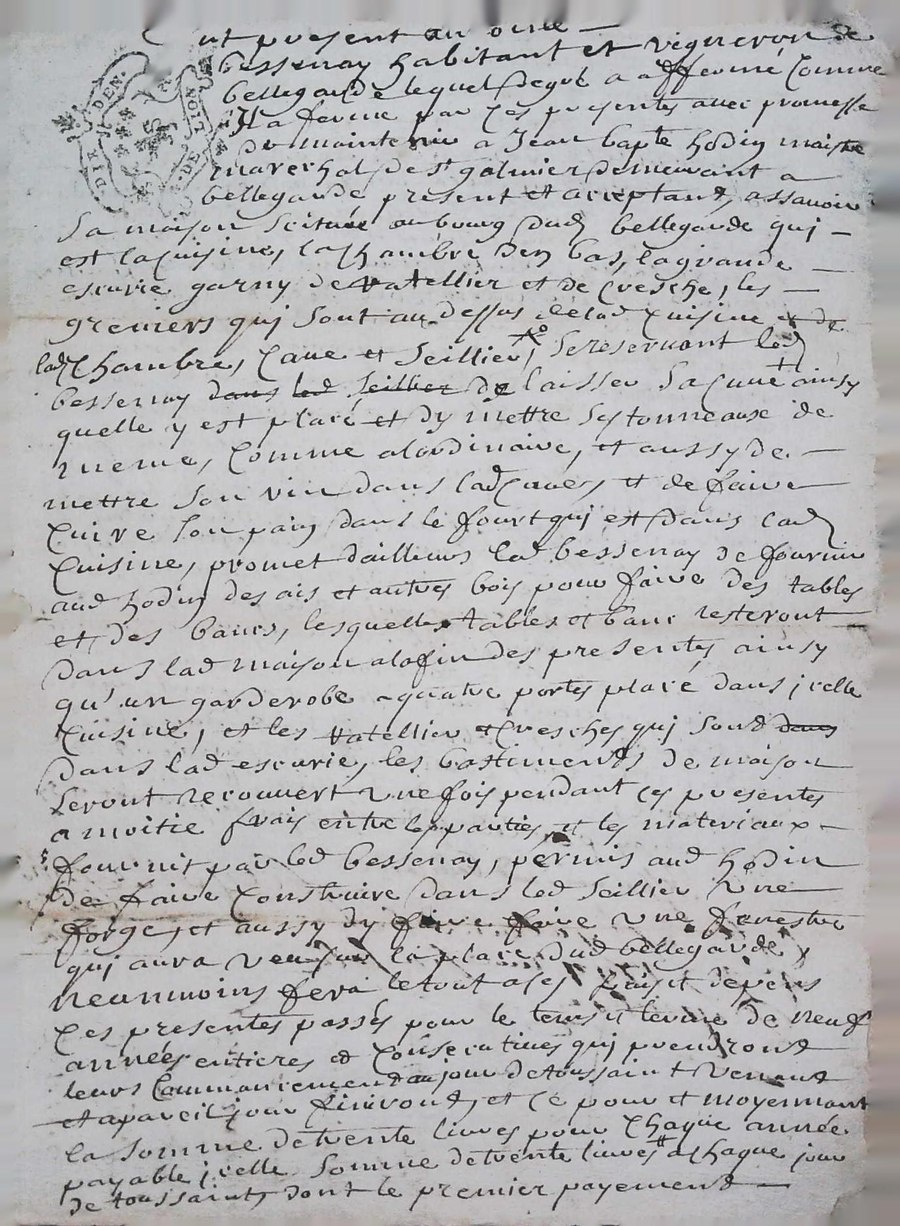 ut present
DIX DEN. DE NOIT
bessenay habitant et vigneron de
bellegarde lequel de gré a affermé comme
Il afferme par ces presentes avec promesse
de maintenir a Jean bapte hodin maitre
marechal de st galmier demeurant a
bellegarde present et acceptant, assavoir
Sa maison Scituée au bourg dud bellegarde qui
est la Cuisine, la chambre den bas, la grande
escurie garny de Ratellier et de Cresche, les
greniers qui sont au dessus de lad Cuisine et de
lad Chambre, Cave et Seillier, Se reservant led
bessenay dans led Seillier de laisser Sa Cuve ainsy
quelle y est placé et dy mettre Ses tonneaux de
meme, Comme alordinaire, et aussy de
mettre Son vin dans lad Cave, et de faire
Cuire Son pain dans le fourt qui est dans lad
Cuisine, promet dailleurs led bessenay de fournir
aud hodin des ais et autres bois pour faire des tables
et des bancs, lesquelles tables et banc resteront
dans lad maison alafin des presentes ainsy
qu'un garderobe aquatre portes placé dans jcelle
Cuisine, et les Ratellier et Cresches qui sont dans
dans lad escurie, les bastiments de maison
Seront recouvert une fois pendant ces presentes
a moitie frais entre les parties, et les materiaux
fournit par led bessenay, permis aud hodin
de faire Construire dans led Seillier une
forge, et aussy dy faire faire une fenestre
qui aura veu sur la place dud bellegarde,
neanmoins fera le tout a ses frais et depens
Ces presentes passés pour le tems et terme de neuf
années entieres et Consecutives qui prendront
leurs Commancement au jour de toussaint venant
et apareil jour finiront, et Ce pour et moyennant
la Somme de trente livres pour Chaque année
payable jcelle Somme de trente livres a chaque jour
de toussaint, dont le premier payement